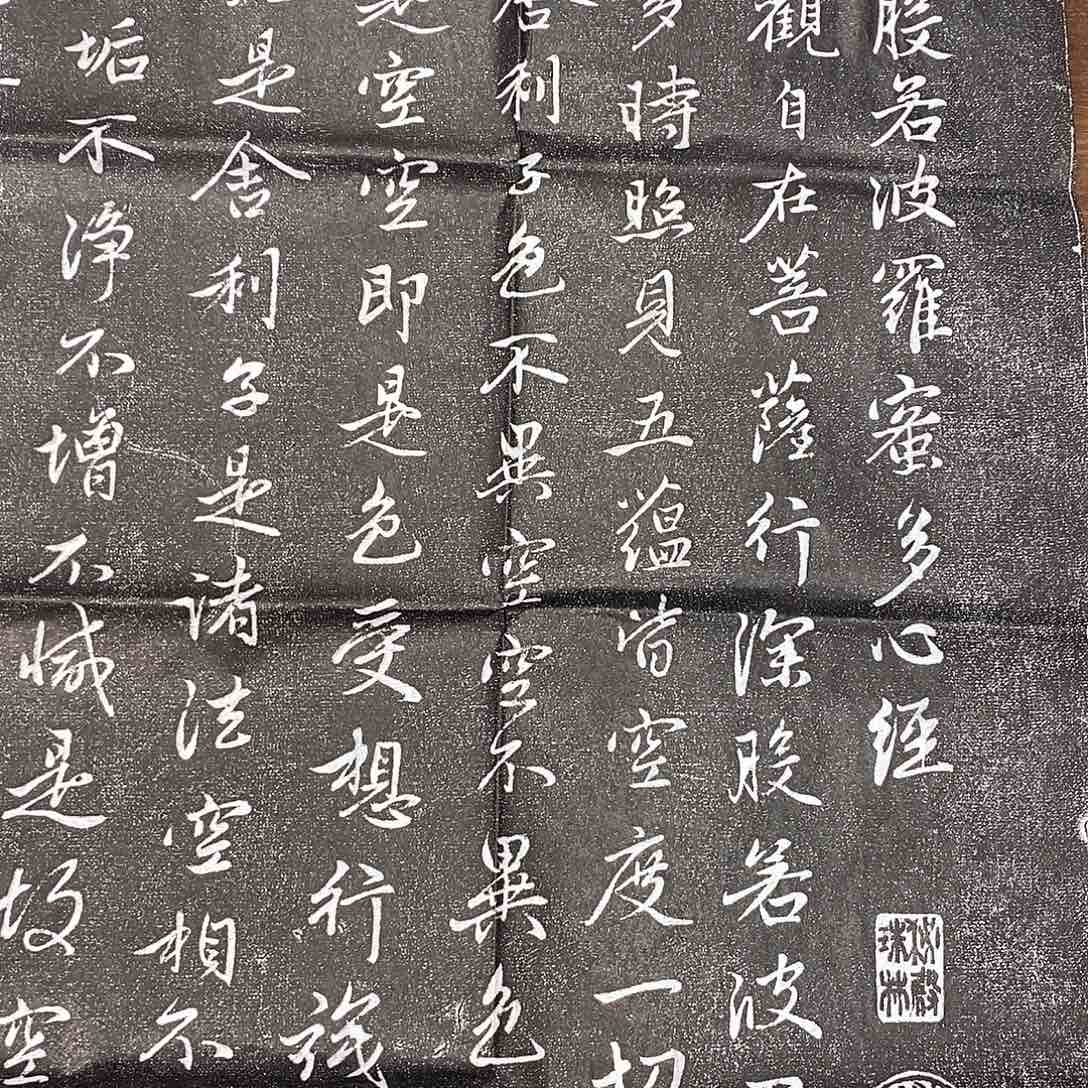 般若波羅蜜多心経
觀自在菩薩行深般若波
多時照見五蘊皆空度一切
舍利子色不異空空不異色
是空空即是色受想行識
是舍利子是諸法空相不
垢不淨不增不減是故空